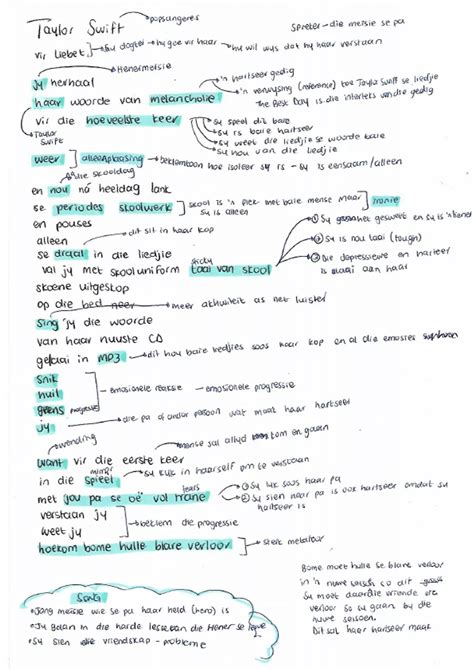 Taylor Swift → popsangeres
Spreker - die meisie se pa
vir Liebet → sy dogter → hy gee vir haar → hy wil wys dat hy haar verstaan
Henermeisie
jy herhaal
'n hartseer gedig
haar woorde van melancholie
'n verwysing (reference) toe Taylor Swift se liedjie
The Best Day is die interteks van die gedig
vir die hoeveelste keer
Sy speel dit baie
Sy is baie hartseer
Sy weet die liedjie se woorde baie
Sy hou van die liedjie
Taylor Swift
weer alleenplasing → beklemtoon hoe isoleer sy is - sy is eensaam/alleen
die skooldag
en nou ná heeldag lank
se periodes skoolwerk
skool is 'n plek met baie mense maar sy is alleen
ironie
en pouses
alleen
dit sit in haar kop
① Sy
gesweet en sy is 'n sweter
se draai in die liedjie
② Sy is nou taai (tough)
sticky
val jy met skooluniform taai van skool
③ Die depressiewe en hartseer is plaaji aan haar
skoene uitgeskop
op die bed neer → meer aktiwiteit as net luister
sing jy die woorde
van haar nuuste CD
gelaai in MP3 → dit hou baie liedjies soos haar kop en al die emosies
snik
huil
emosionele reaksie - emosionele progressie
geens progressie
jy → die pa of ander persoon wat maak haar hartseer
wending
want vir die eerste keer
mense sal altyd kom en gaan
mirror
in die spieël → sy kyk in haarself om te verstaan
tears
met jou pa se oë vol trane
① Sy lyk soos haar pa
② Sy sien haar pa is ook hartseer omdat sy hartseer is
verstaan jy
weet jy
beklem die progressie
hoekom bome hulle blare verloor → sterk metafoor
Bome moet hulle se blare verloor
in 'n nuwe seisoen so dit
Sy moet daardie vriende
verloor so sy gaan by die
nuwe seisoen.
Dit sal haar hartseer maak
Song
• Jong meisie wie se pa haar held (hero) is
• Jy gaan in die harde lesse van die Hener se lewe
• Sy sien die vriendskap - probleme